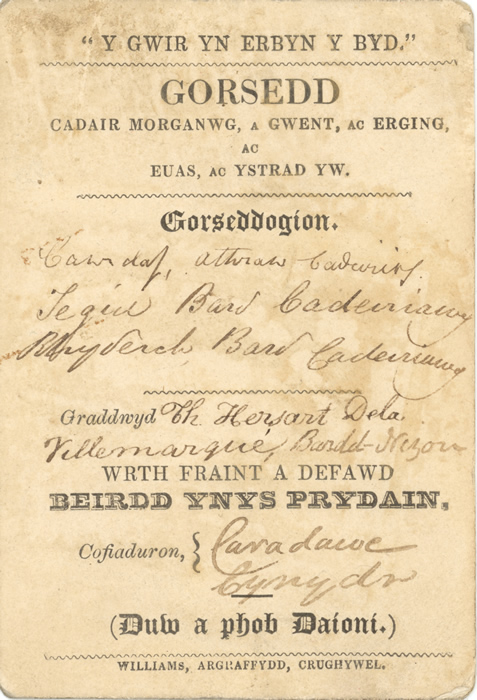 “ Y GWIR YN ERBYN Y BYD.”
GORSEDD
CADAIR MORGANWG, A GWENT, AC ERGING,
AC
EUAS, AC YSTRAD YW.
Gorseddogion.
Cawrdaf, athraw
Tegid Bard Cadeiriawg
Rhydderch Bard Cadeiriawg
Graddwyd Th. Hersart Dela
Villemarqué, Bardd Nizon
WRTH FRAINT A DEFAWD
BEIRDD YNYS PRYDAIN,
Cofiaduron, { Caradawc
Cynydr
(Duw a phob Daioni.)
WILLIAMS, ARGRAFFYDD, CRUGHYWEL.